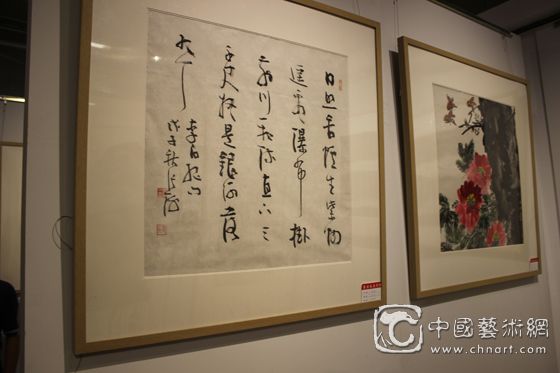 日照香炉生紫烟
遥看瀑布掛
前川飛流直下三
千尺疑是銀河落
九天
李白
戊子秋
中國藝術網
www.chnart.com